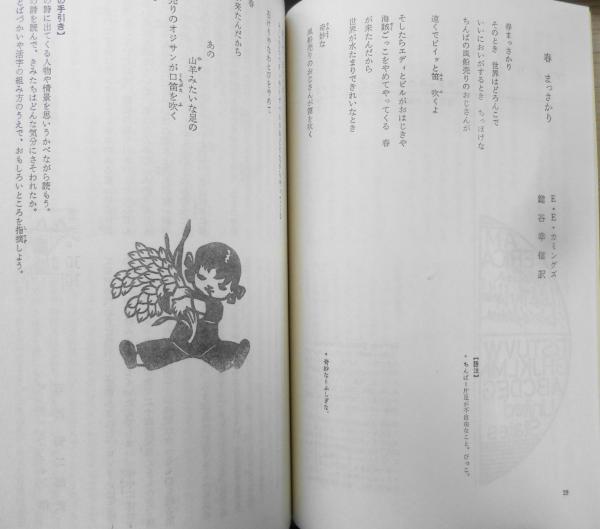 春　まっさかり
E・E・カミングズ
鍵谷幸信訳
春まっさかり
そのとき　世界はどろんこで
いいにおいがするとき　ちっぽけな
ちんばの風船売りのおじさんが
遠くでピイッと笛　吹くよ
そしたらエディとビルがおはじきや
海賊ごっこをやめてやってくる　春
が来たんだから
世界が水たまりできれいなとき
奇妙な
風船売りのおじさんが笛を吹く
【語注】
・ちんば＝片足が不自由なこと。びっこ。
・奇妙な＝ふしぎな。
19
春
が来たんだから
あの
山羊みたいな足の
売りのオジサンが口笛を吹く
の手引き】
の詩に出てくる人物や情景を思いうかべながら読もう。
の詩を読んで、きみたちはどんな気分にさそわれたか。
とばづかいや活字の組み方のうえで、おもしろいところを指摘しよう。